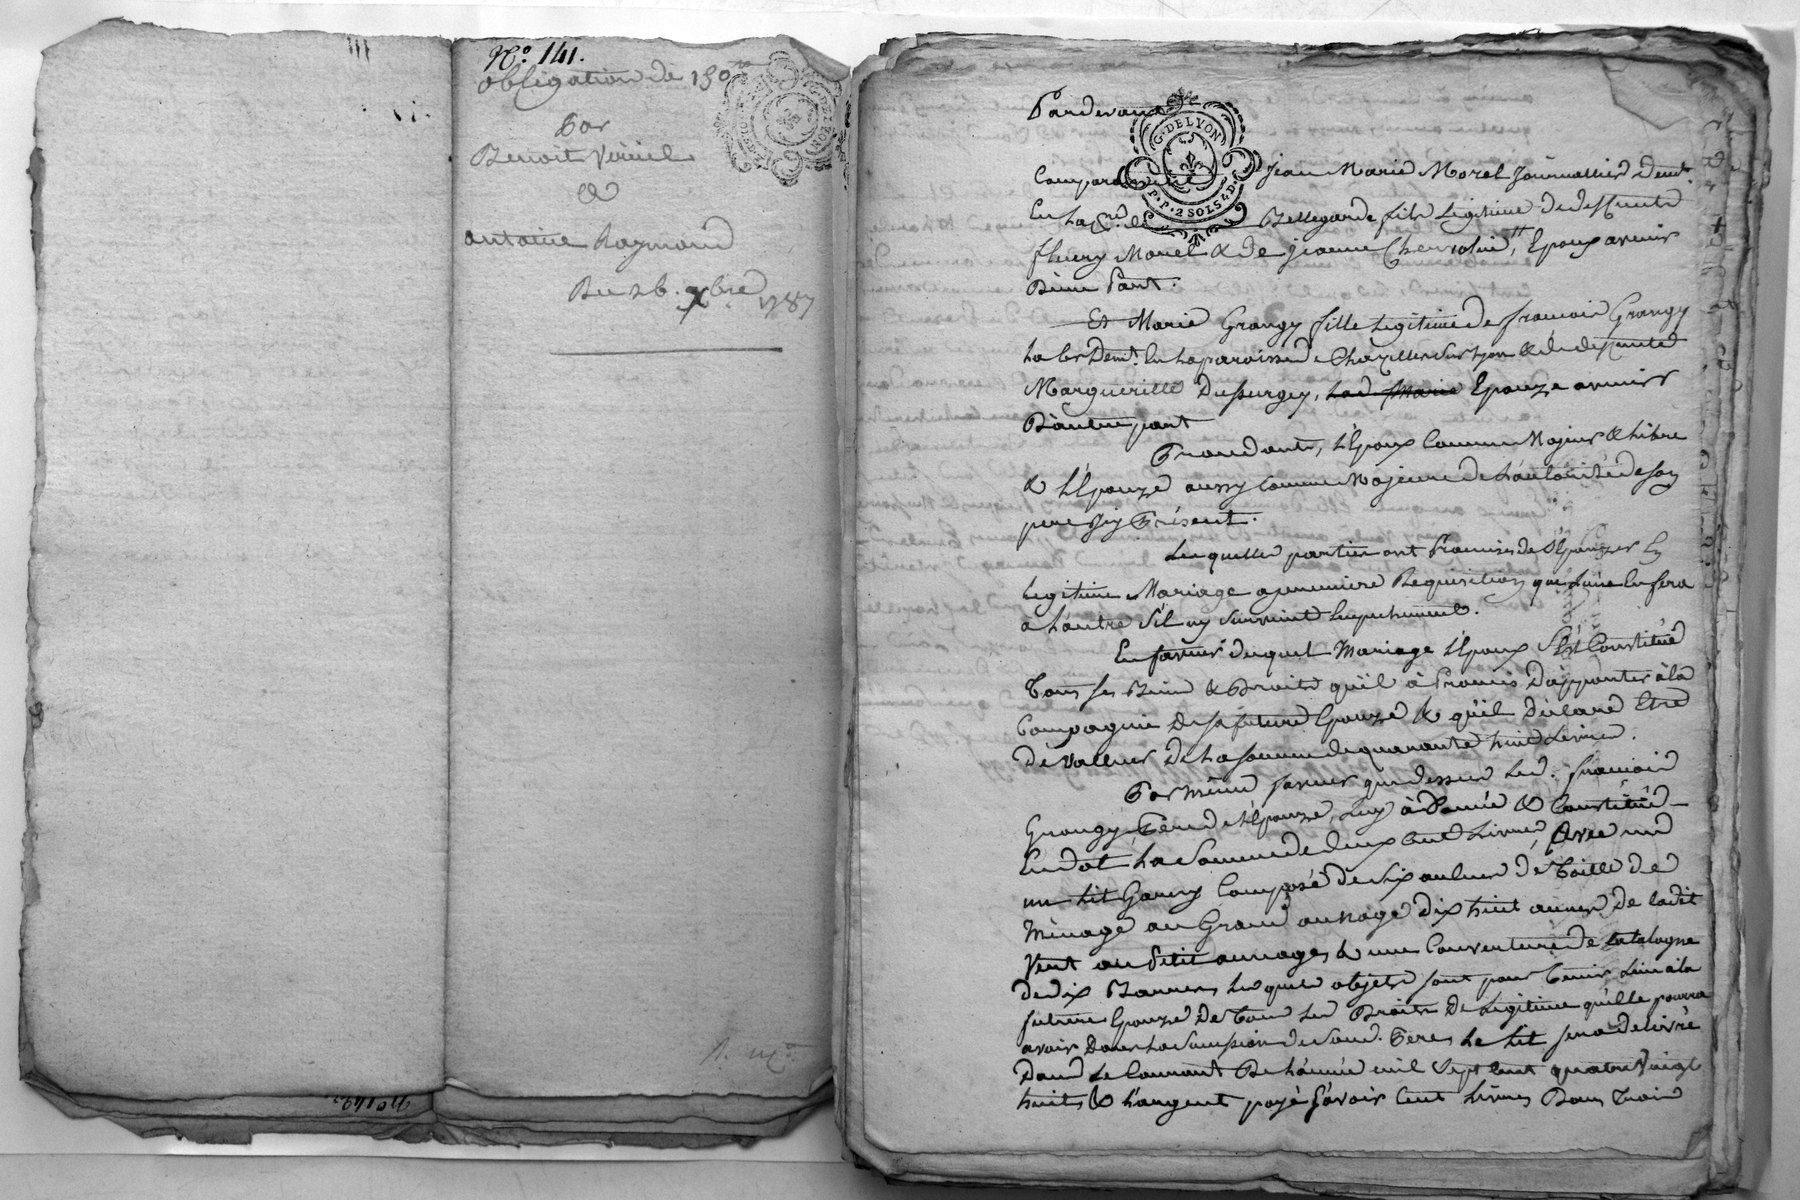 N.º 141.
obligation de 150
Par
Benoit Veriuel
a
antoine Raymond
Du 26. xbre 1787
Pardevant
G. DE LYON
P. P. 2 SOLS 4 D.
Comparaissent Jean Marie Morel Journallier demt
En la Bellegarde fils Legitime de deffunts
fleury Morel & de jeanne Epoux avenir
D'une Part.
Et Marie Grangy fille Legitime de francois Grangy
demt. En la paroisse de Chazelles sur Lyon & de deffuncte
Margueritte Dussurgey, Epouze avenir
D'autre part
Procedants, l'Epoux Comme Majeur & Libre
& l'Epouze aussy Comme Majeure de l'autorité de son
pere Icy Présent.
Lesquelles parties ont Promis de s'Epouzer En
Legitime Mariage a premiere Requisition que l'une En fera
a l'autre s'il ny survient Empechement.
En faveur duquel Mariage l'Epoux s'Est Constitué
Tous ses Biens & Droits qu'il à Promis D'apporter à la
Compagnie De sa future Epouze & qu'il Déclare Etre
De valleur De la somme de quarante huit Livres.
Par même faveur que dessus led. francois
Grangy Pere de l'Epouze, Luy à Donné & Constitué
En dot La Somme de deux Cent Livres, Avec un
un Lit Garny Composé de six aulnes de Toille de
Ménage au Grand aunage dix huit aunes De Cadit
Vert au Petit aunage, & une Couverture de Catalogne
de dix Barres, Lesquels objets sont pour Tenir Lieu à la
future Epouze De Tous Les Droits De Legitime qu'elle pourra
avoir Dans La Succession de Sond. Pere, Le Lit sera delivré
Dans Le Courant De l'année mil sept Cent quatre Vingt
huit, & l'argent payé Sçavoir Cent Livres Dans Trois